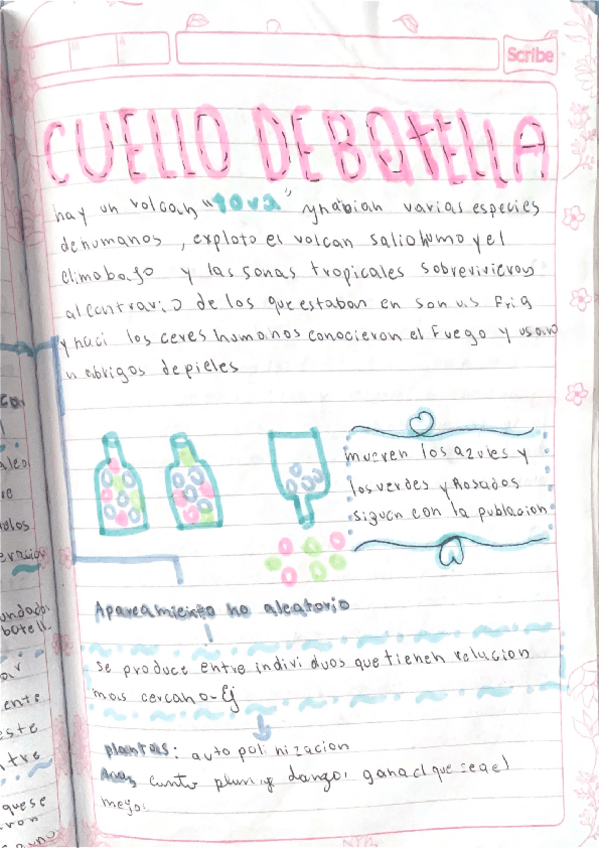 Scribe
CUELLO DE BOtELLA
hay un volcan "tova" y habian varias especies
de humanos , exploto el volcan salio humo y el
climo bajo y las sonas tropicales sobrevivieron
al contrario de los que estaban en sonas Fria
y haci los ceres humanos conocieron el Fuego y usaro
n abrigos de pieles
mueren los azules y
los verdes y Rosados
siguen con la publacion
Apareamiento no aleatorio
se produce entre individuos que tienen relucion
mas cercana- Ej
plantas: auto polinizacion
Aves canto plumaje danza, gana el que sea el
mejor